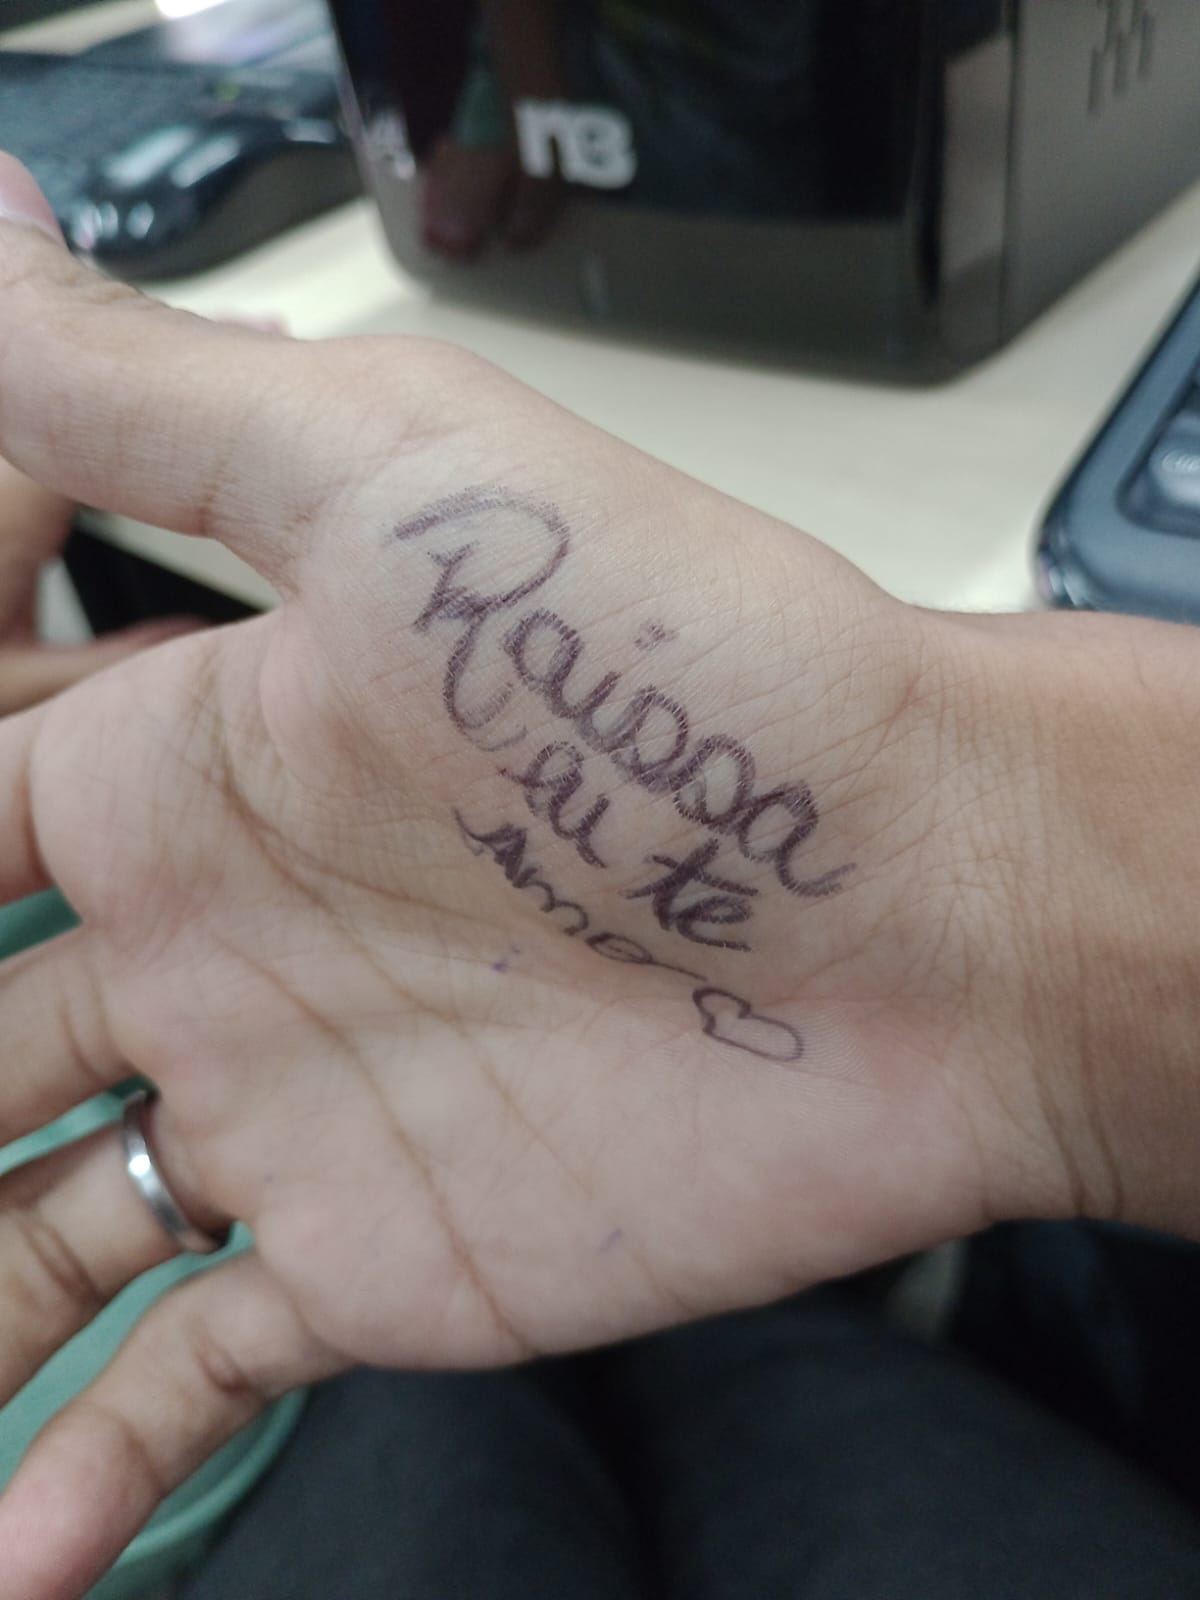 Raissa
eu te
Amo